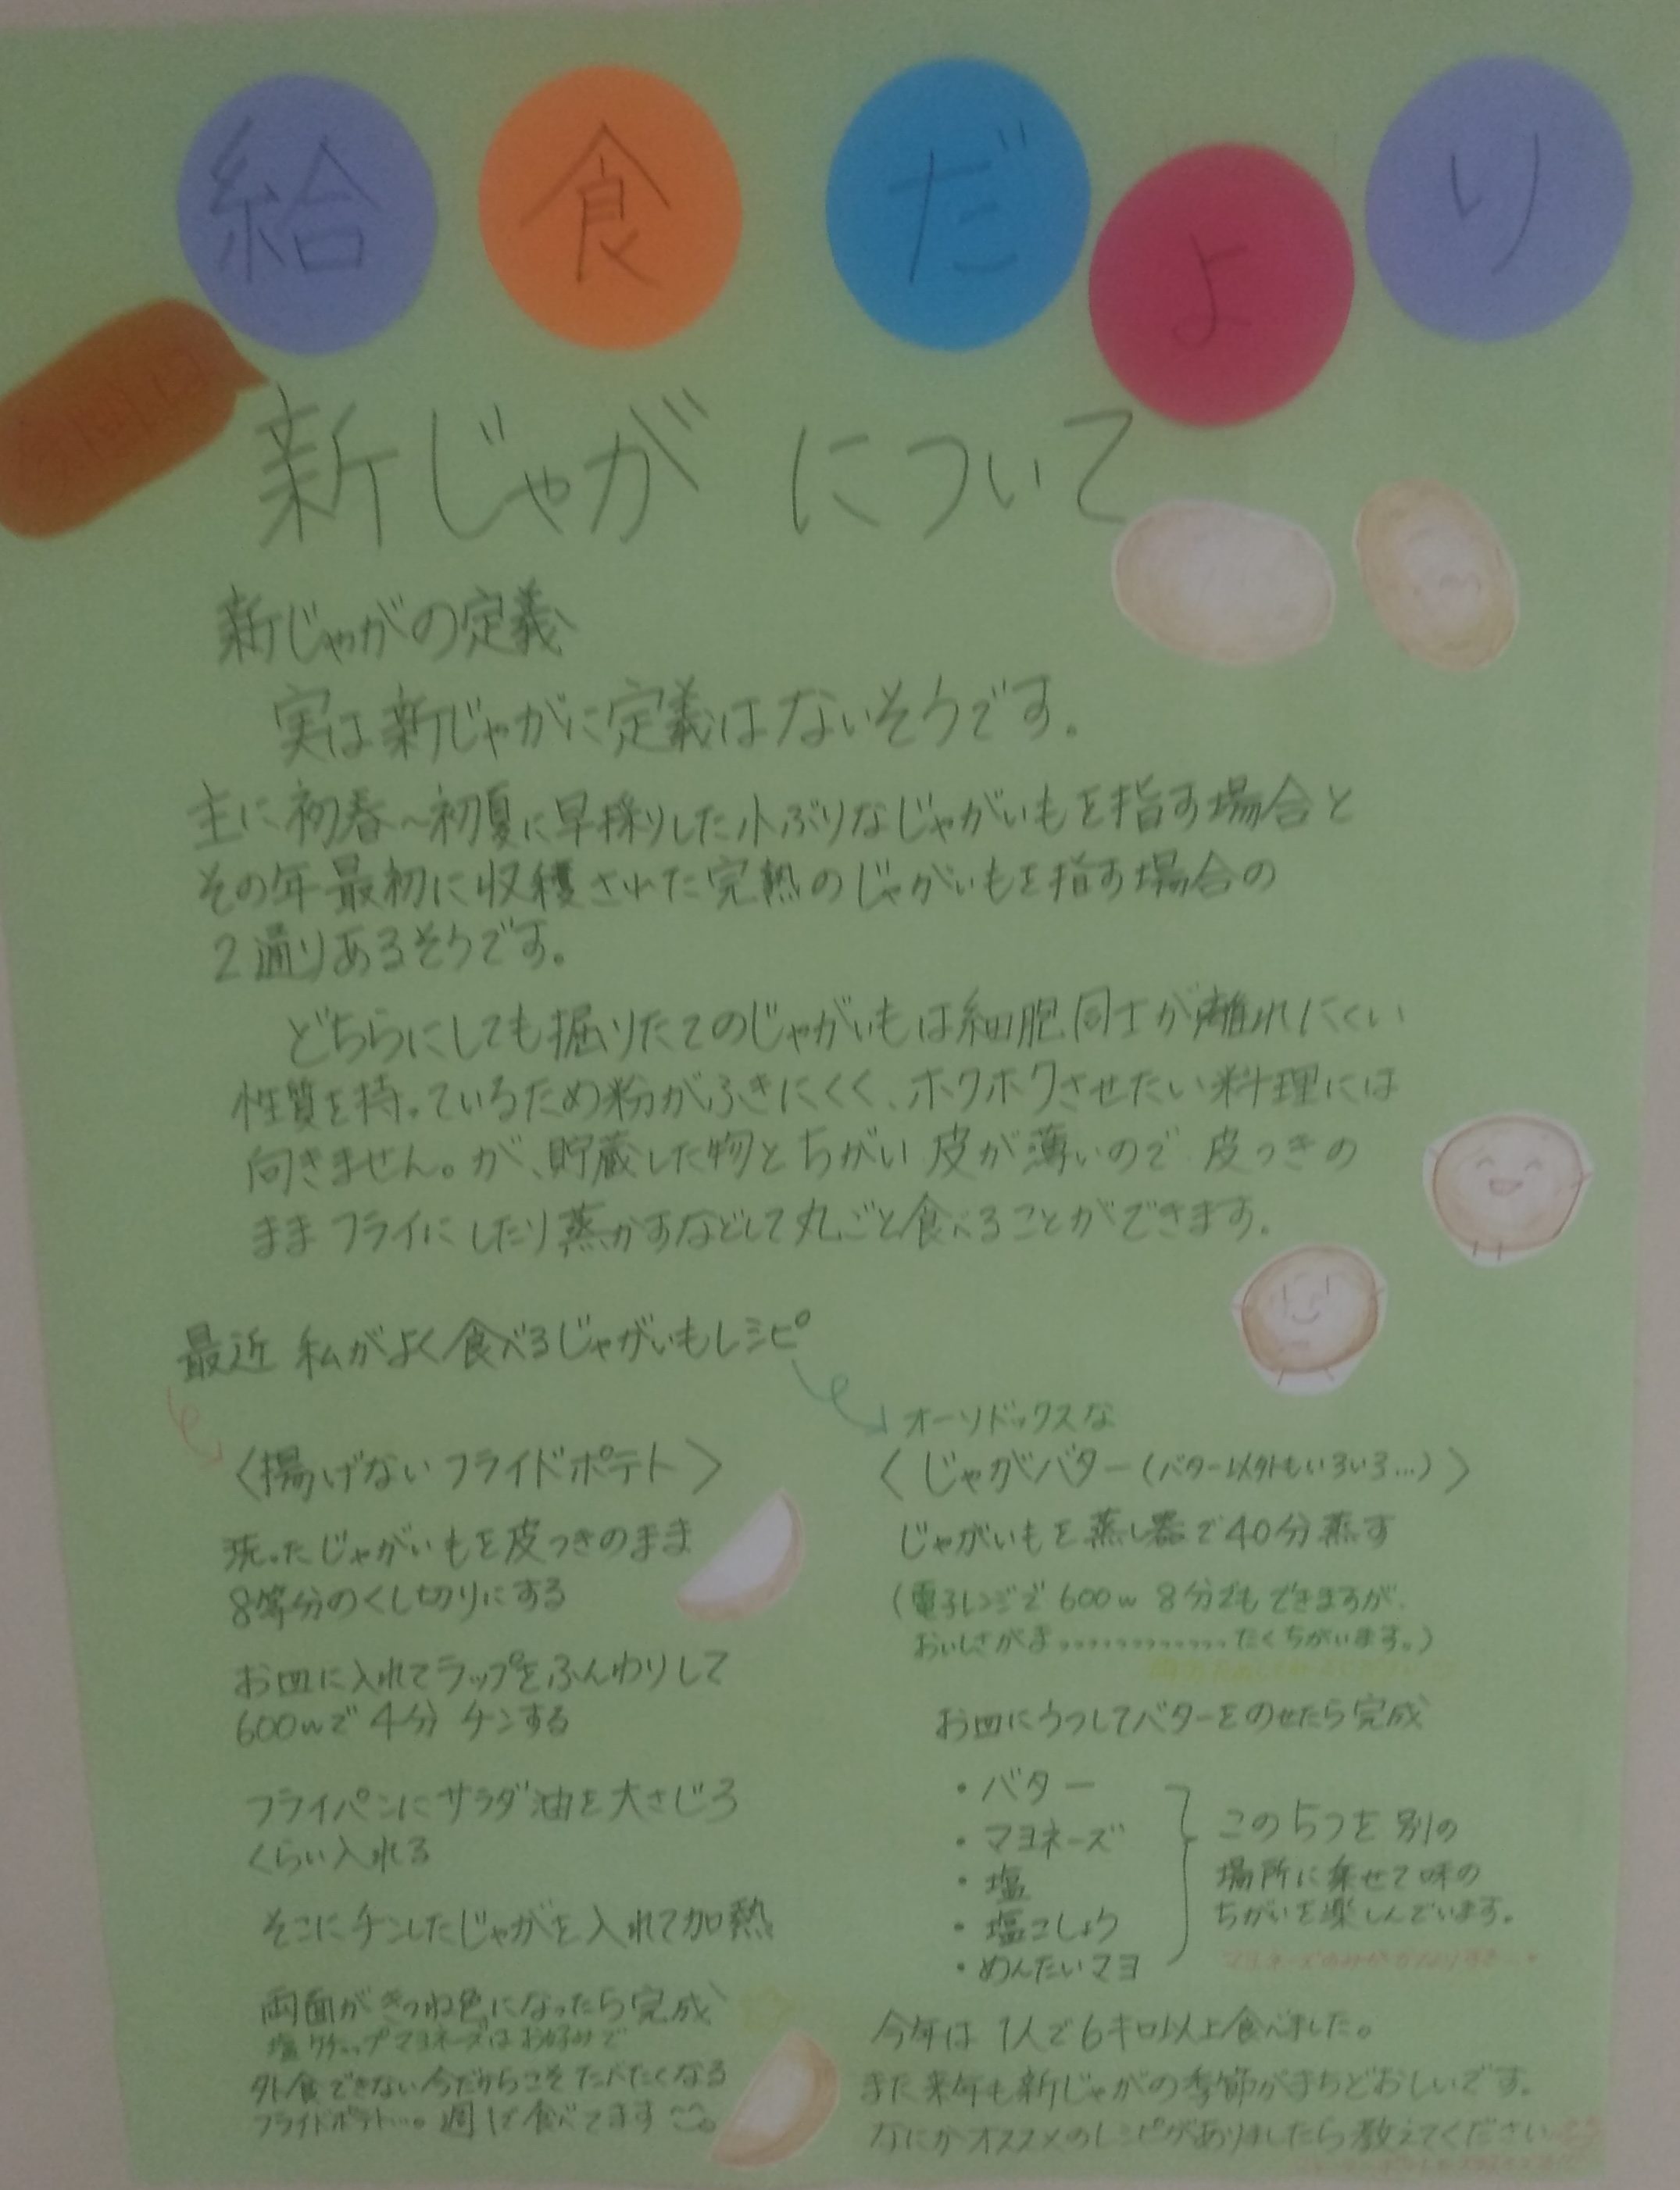 給食だより
今回は
新じゃがについて
新じゃがの定義
実は新じゃがに定義はないそうです。
主に初春~初夏に早採りした小ぶりなじゃがいもを指す場合と
その年最初に収穫された完熟のじゃがいもを指す場合の
2通りあるそうです。
どちらにしても掘りたてのじゃがいもは細胞同士が離れにくい
性質を持っているため粉がふきにくく、ホクホクさせたい料理には
向きません。が、貯蔵した物とちがい皮が薄いので皮つきの
ままフライにしたり蒸かすなどして丸ごと食べることができます。
最近私がよく食べるじゃがいもレシピ
〈揚げないフライドポテト〉
洗ったじゃがいもを皮つきのまま
8等分のくし切りにする
お皿に入れてラップをふんわりして
600wで4分チンする
フライパンにサラダ油を大さじ3
くらい入れる
そこにチンしたじゃがを入れて加熱
両面がきつね色になったら完成
塩ケチャップマヨネーズはお好みで
外食できない今だからこそたべたくなる
フライドポテト…。週1で食べてます
オーソドックスな
〈じゃがバター(バター以外もいろいろ…)〉
じゃがいもを蒸し器で40分蒸す
(電子レンジで600w8分でもできますが、
おいしさがまっっっっっっっっっっっったくちがいます。)
お皿にうつしてバターをのせたら完成
・バター
・マヨネーズ
・塩
・塩こしょう
・めんたいマヨ
この5つを別の
場所に乗せて味の
ちがいを楽しんでいます。
今年は1人で6キロ以上食べました。
また来年も新じゃがの季節がまちどおしいです。
なにかオススメのレシピがありましたら教えてください